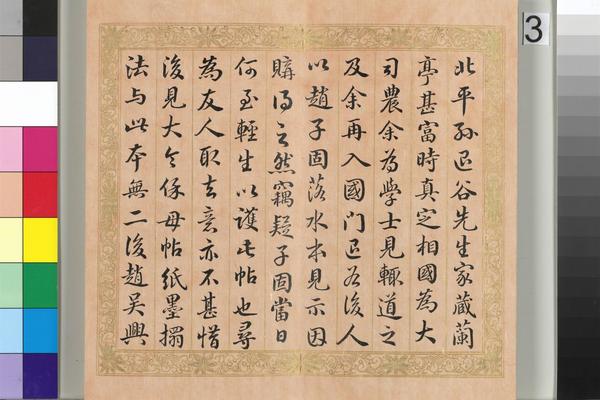 3
北平孫退谷先生家藏蘭
亭甚富時真定相國為大
司農余為學士見輒道之
及余再入國門退谷後人
以趙子固落水本見示因
購得之然竊疑子固當日
何至輕生以護此帖也尋
為友人取去意亦不甚惜
後見大令保母帖紙墨搨
法与此本無二後趙吳興